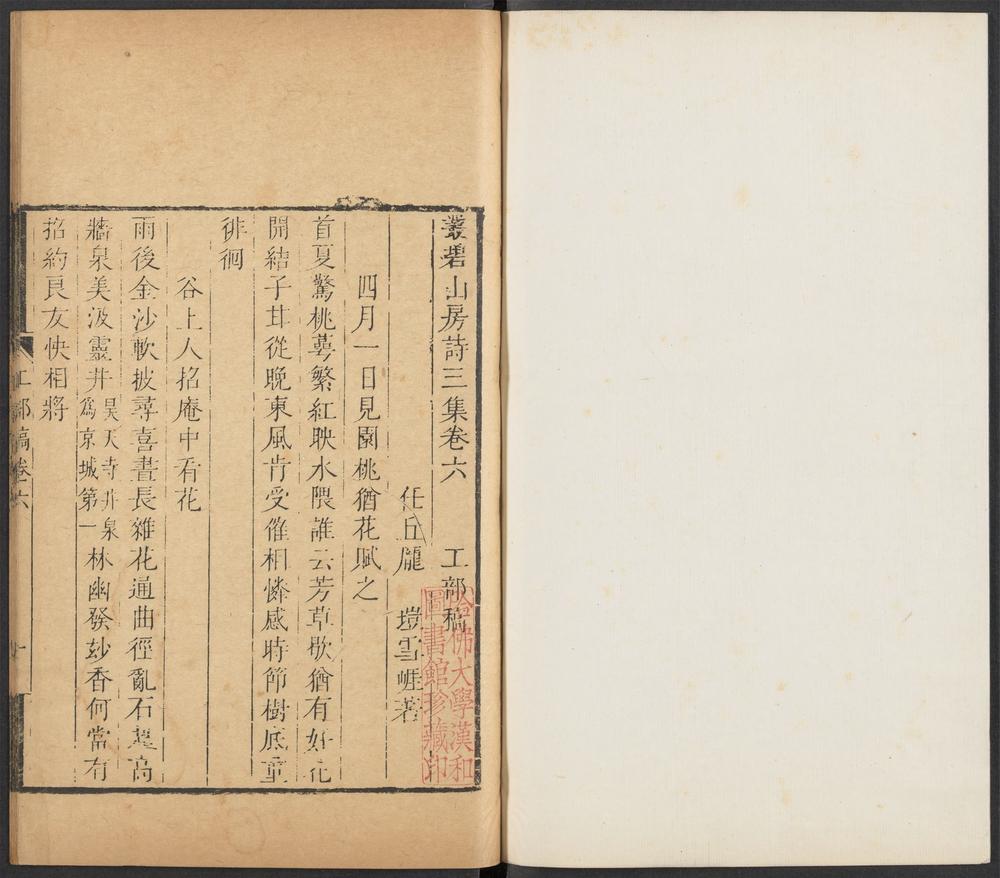 叢碧山房詩三集卷六 工部稿
任丘龐 塏雪崖著
四月一日見園桃猶花賦之
首夏驚桃萼繁紅映水隈誰云芳草歇猶有好花
開結子甘從晚東風肯受催相憐感時節樹底重
徘徊
谷上人招庵中看花
雨後金沙軟披尋喜晝長雜花通曲徑亂石疊高
牆泉美汲靈井昊天寺井泉為京城第一林幽發玅香何當有
招約良友快相將
工部稿卷六
哈佛大學漢和
圖書館珍藏印